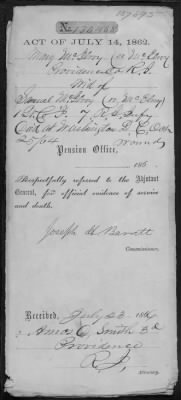 ACT OF JULY 14, 1862.
Mary McElroy (or McEvoy)
Providence R. I.
Wid of
Samuel McElroy (or McEvoy)
Pt. Co. F. 7 R. I. Infy
Died at Washington D. C. Oct
25/64 Wounds
Pension Office,
186 .
Respectfully referred to the Adjutant
General, for official evidence of service
and death.
Joseph H Barrett
Commissioner.
Received, July 23 186
Amos C. Smith 3d
Providence
R. I.
Attorney.